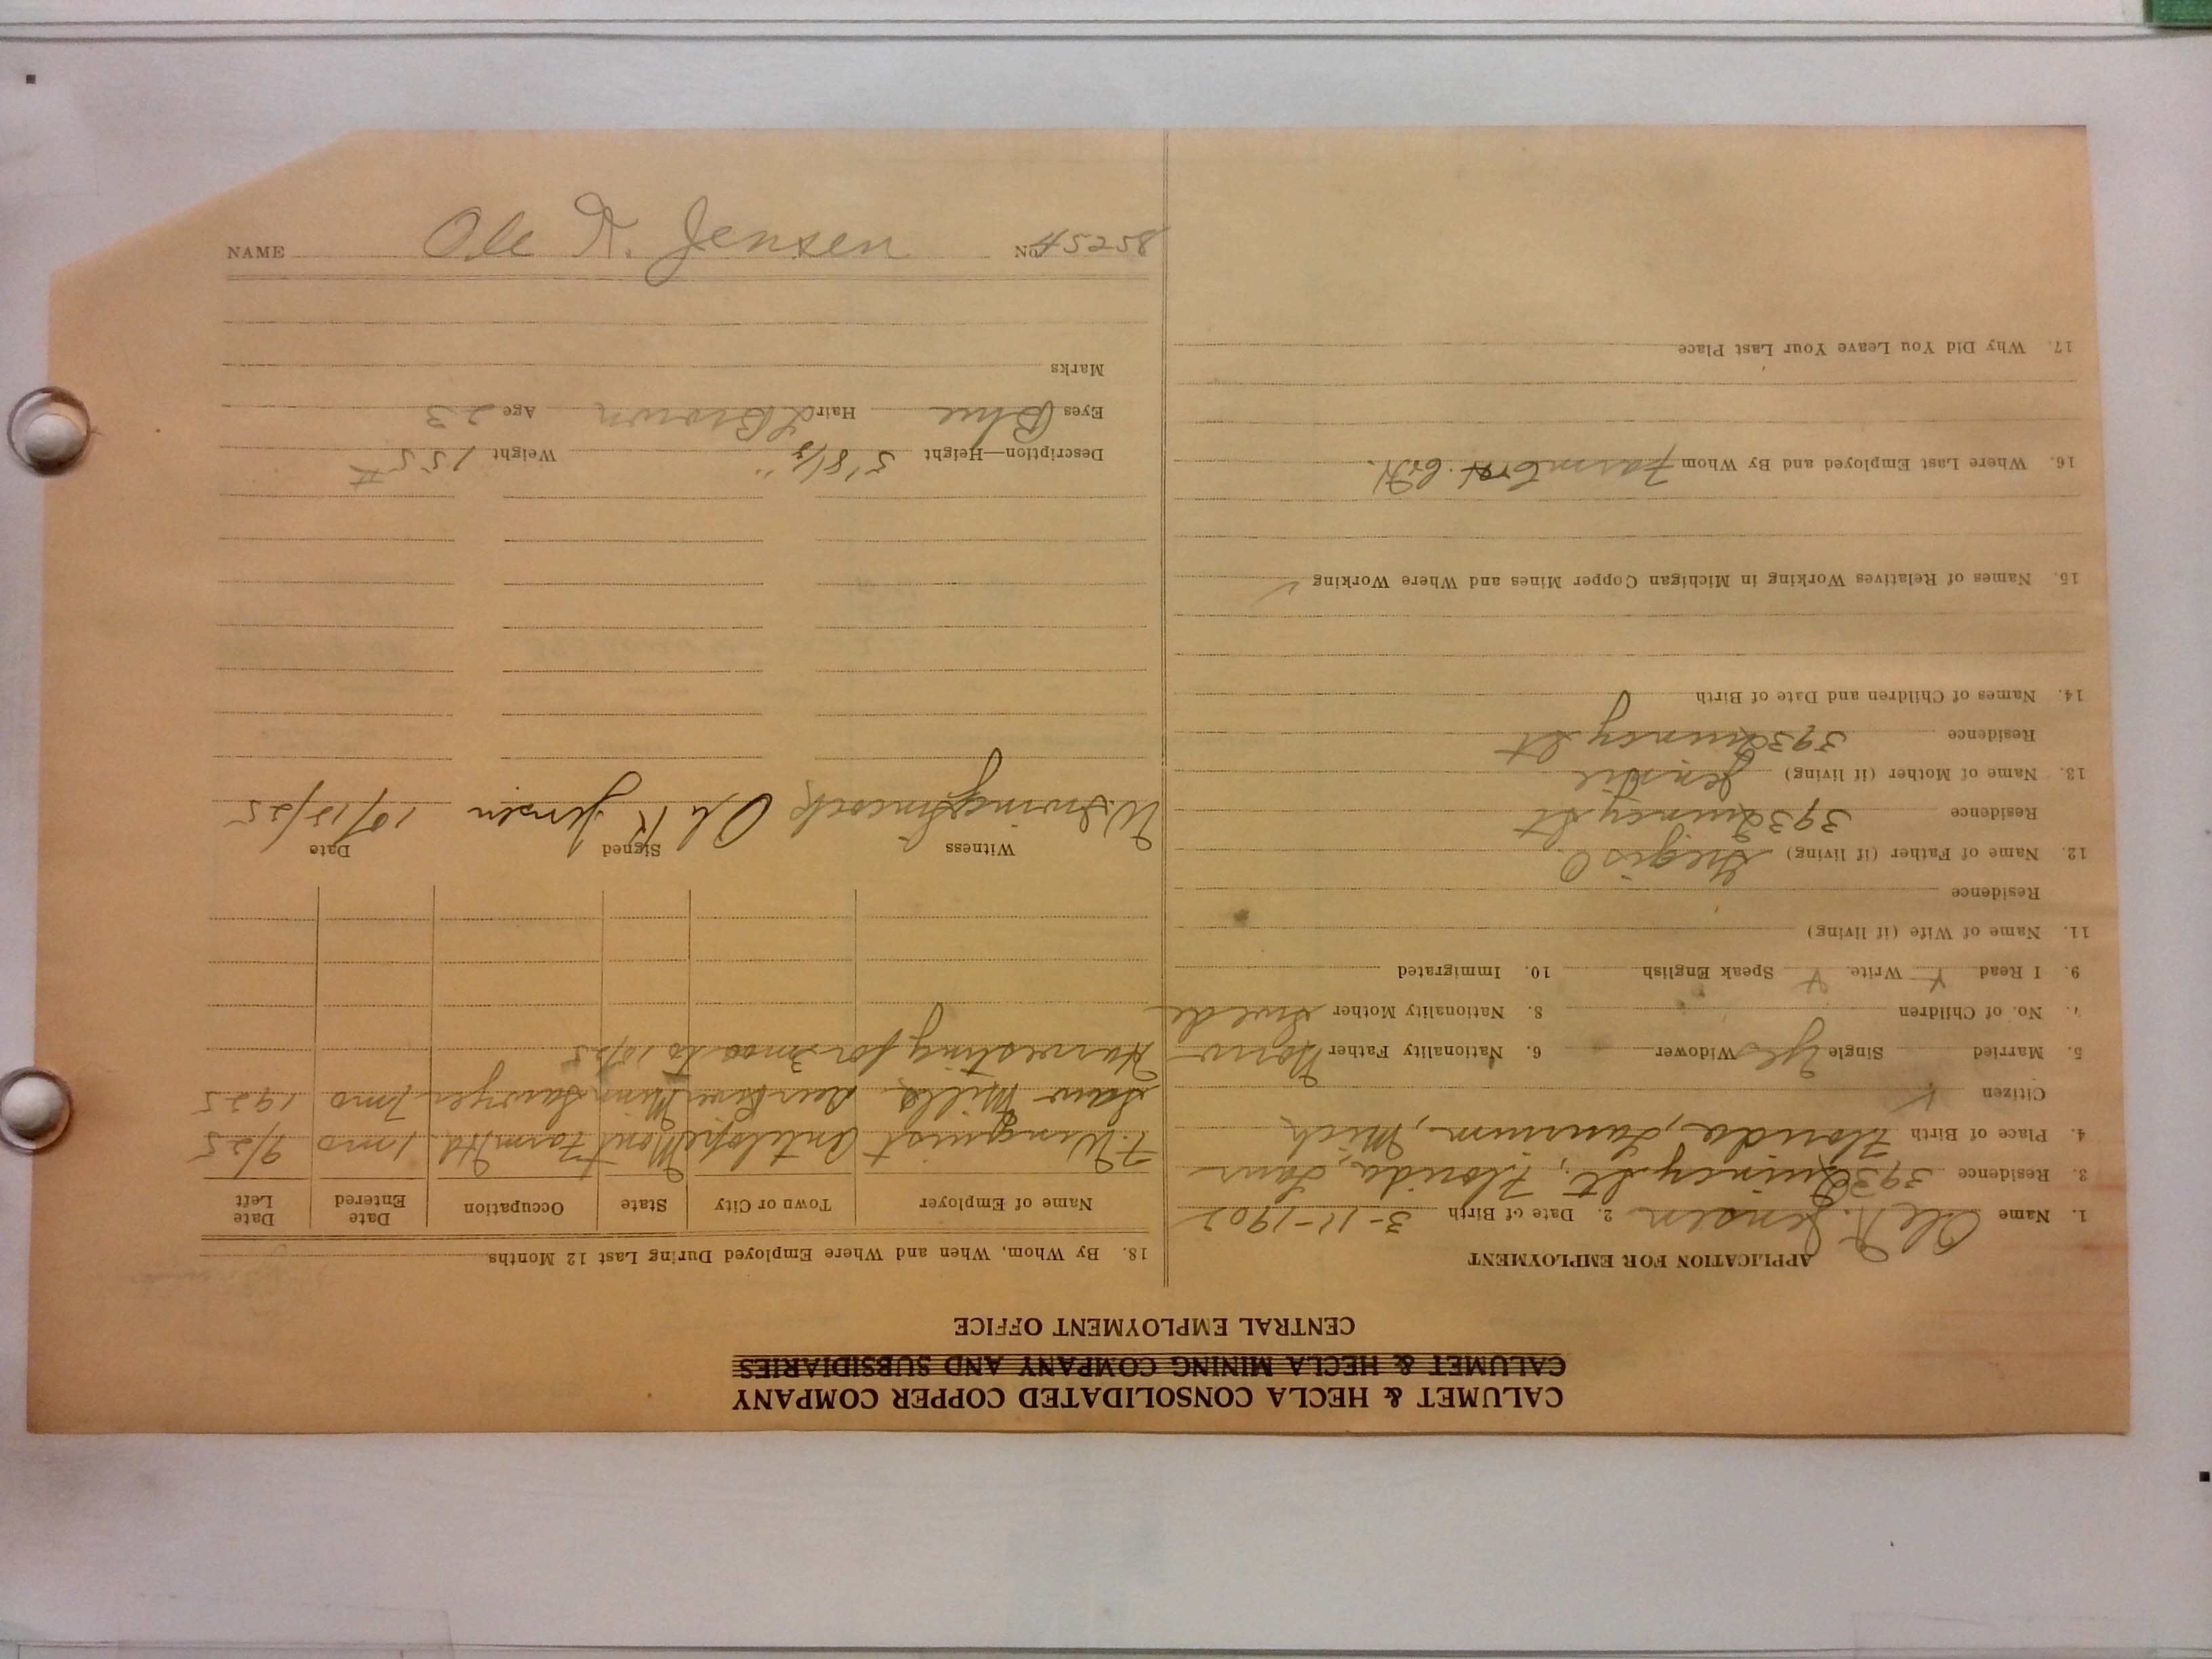 CALUMET & HECLA CONSOLIDATED COPPER COMPANY
CALUMET & HECLA MINING COMPANY AND SUBSIDIARIES
CENTRAL EMPLOYMENT OFFICE
APPLICATION FOR EMPLOYMENT
1. Name Ole K. Jensen 2. Date of Birth 3-11-1902
3. Residence 393 Quincy St, Florida, Laur
4. Place of Birth Florida, Laurium, Mich
Citizen
5. Married Single Yes Widower 6. Nationality Father Norw
7. No. of Children 8. Nationality Mother Swede
9. I Read Y Write Y Speak English 10. Immigrated
11. Name of Wife (if living)
Residence
12. Name of Father (if living)
Residence 393 Quincy St
13. Name of Mother (if living)
Residence 393 Quincy St
14. Names of Children and Date of Birth
15. Names of Relatives Working in Michigan Copper Mines and Where Working
16. Where Last Employed and By Whom
17. Why Did You Leave Your Last Place
18. By Whom, When and Where Employed During Last 12 Months
Name of Employer Town or City State Occupation Date Entered Date Left
F. Wingquist Antelope Mont Farm Hd. 1 mo 9/25
Saw Mills Deer River Minn Sawyer 7 mo 1925
Harvesting for 3 mos to 10/25
Witness Signed Date
W. Irving Ole K Jensen 10/15/25
Description—Height 5'8 1/2" Weight 155 #
Eyes Blue Hair L Brown Age 23
Marks
NAME Ole K. Jensen No. 45258